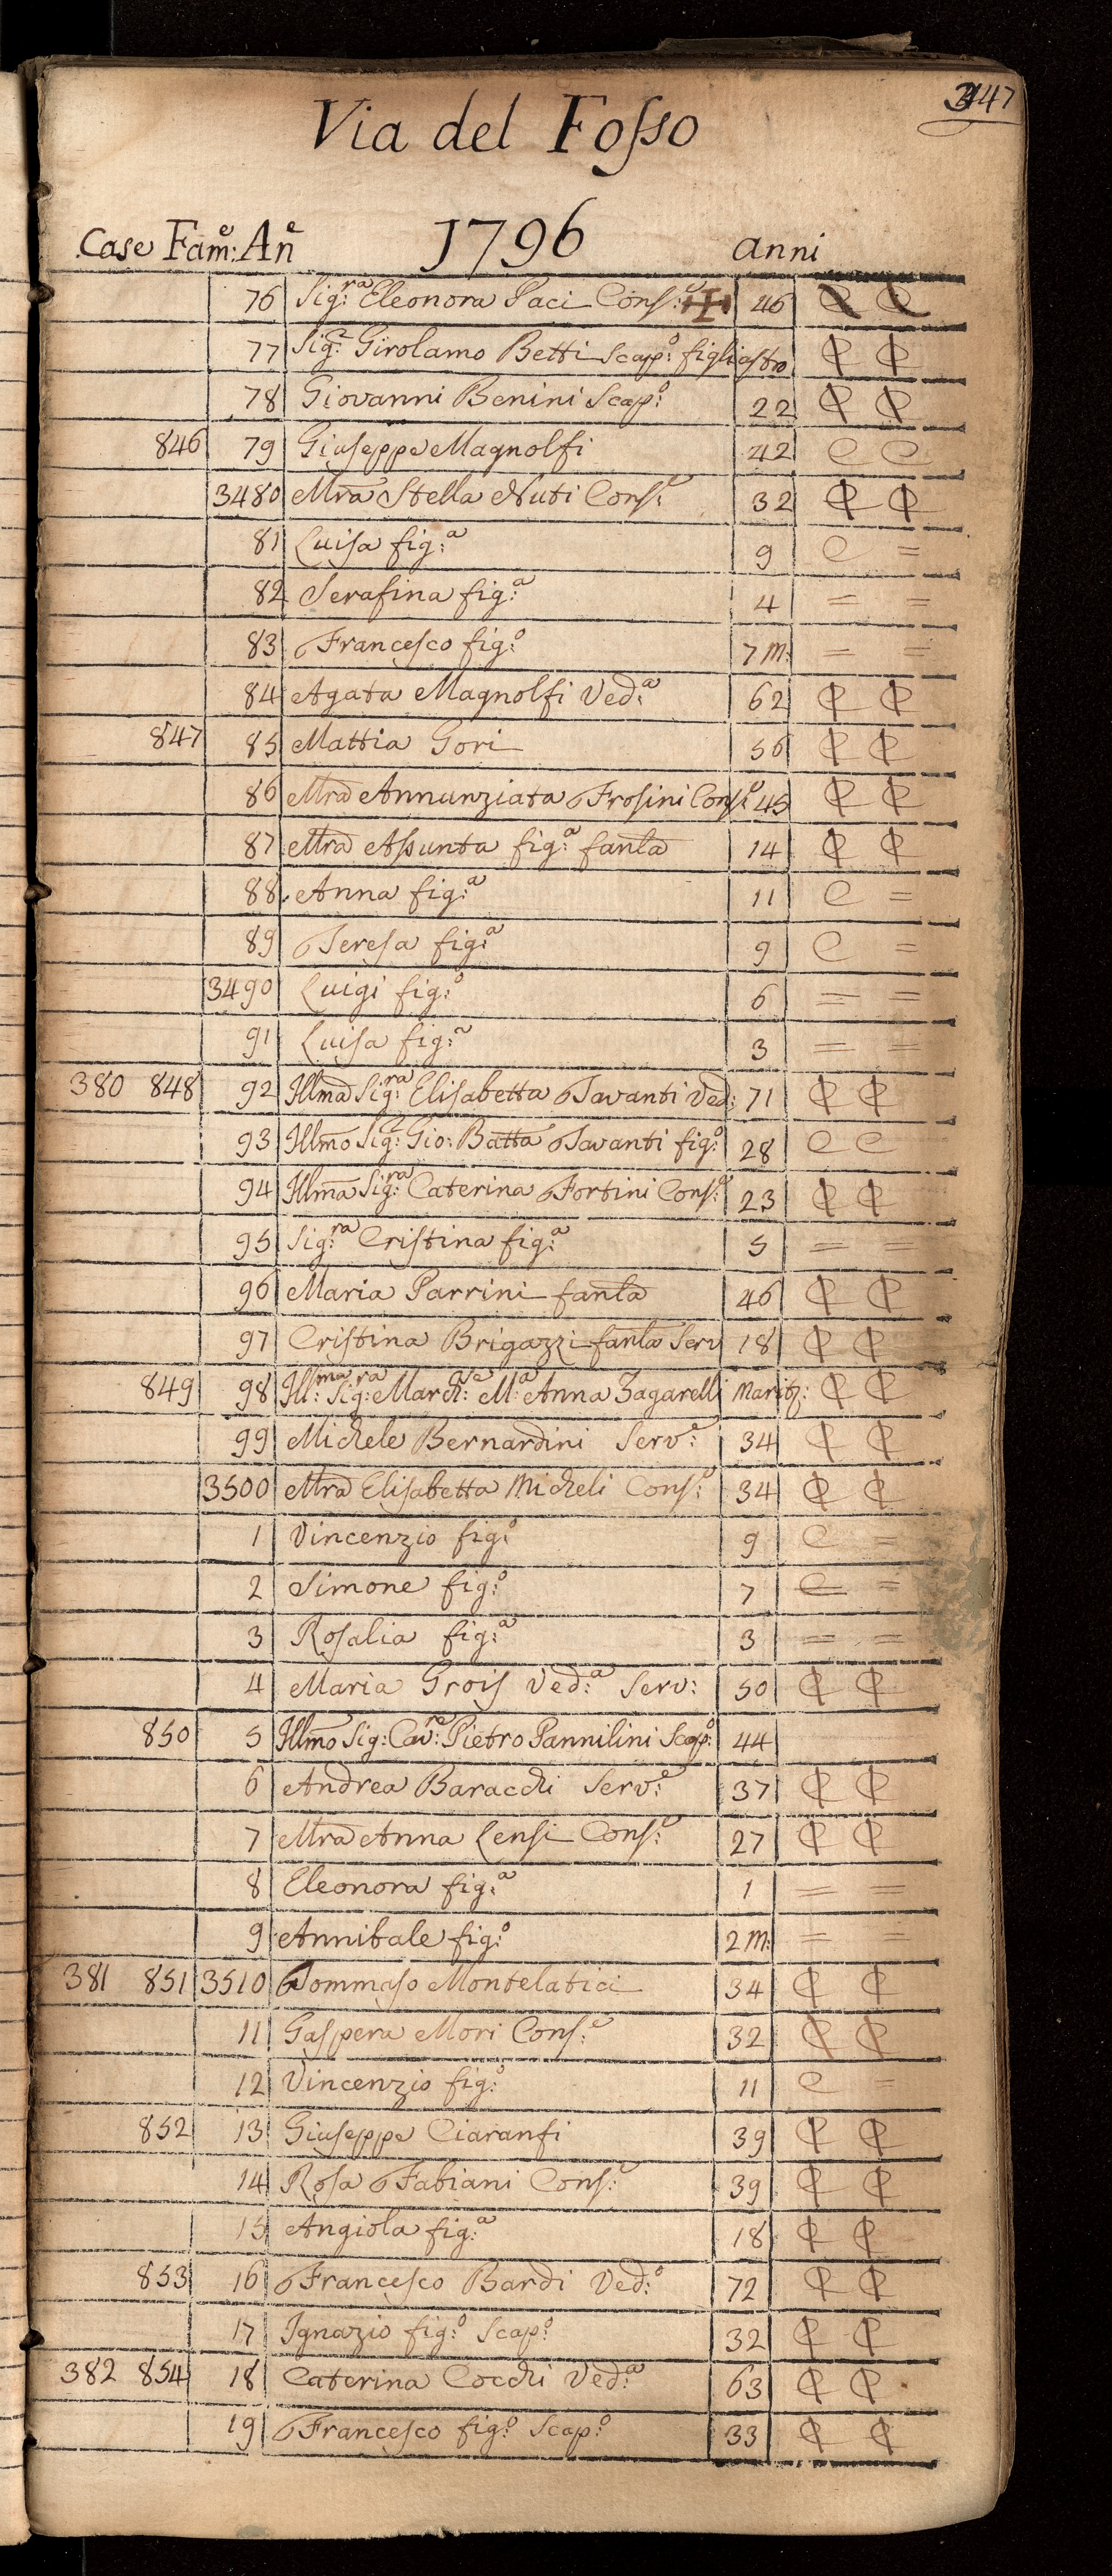 347
Via del Fosso
Case Fam:e An:e 1796 anni
76 Sig:ra Eleonora Paci Cons:e 46 C C
77 Sig:r Girolamo Betti Scap:o figliastro
78 Giovanni Benini Scap:o 22
846 79 Giuseppe Magnolfi 42 C C
3480 Mra Stella Nuti Cons:e 32
81 Luisa fig:a 9 C =
82 Serafina fig:a 4 = =
83 Francesco fig:o 7 m: = =
84 Agata Magnolfi Ved:a 62
847 85 Mattia Gori 56
86 Mra Annunziata Frosini Cons:e 45
87 Mra Assunta fig:a fanla 14
88 Anna fig:a 11 C =
89 Teresa fig:a 9 C =
3490 Luigi fig:o 6 = =
91 Luisa fig:a 3 = =
380 848 92 Illma Sig:ra Elisabetta Tavanti Ved: 71
93 Illmo Sig:r Gio: Batta Tavanti fig:o 28 C C
94 Illma Sig:ra Caterina Fortini Cons:e 23
95 Sig:ra Cristina fig:a 5 = =
96 Maria Parrini fanla 46
97 Cristina Brigazzi fanla Serv 18
849 98 Ill:ma Sig:ra March:sa M:a Anna Zagarelli Marit:
99 Michele Bernardini Serv:e 34
3500 Mra Elisabetta Micheli Cons:e 34
1 Vincenzio fig:o 9 C =
2 Simone fig:o 7 C =
3 Rosalia fig:a 3 = =
4 Maria Grois Ved:a Serv: 50
850 5 Illmo Sig: Cav:re Pietro Pannilini Scap:o 44
6 Andrea Baracchi Serv:e 37
7 Mra Anna Lensi Cons:e 27
8 Eleonora fig:a 1 = =
9 Annibale fig:o 2 m: = =
381 851 3510 Tommaso Montelatici 34
11 Gaspera Mori Cons:e 32
12 Vincenzio fig:o 11 C =
852 13 Giuseppe Ciaranfi 39
14 Rosa Fabiani Cons:e 39
15 Angiola fig:a 18
853 16 Francesco Bardi Ved:o 72
17 Ignazio fig:o Scap:o 32
382 854 18 Caterina Cocchi Ved:a 63
19 Francesco fig:o Scap:o 33